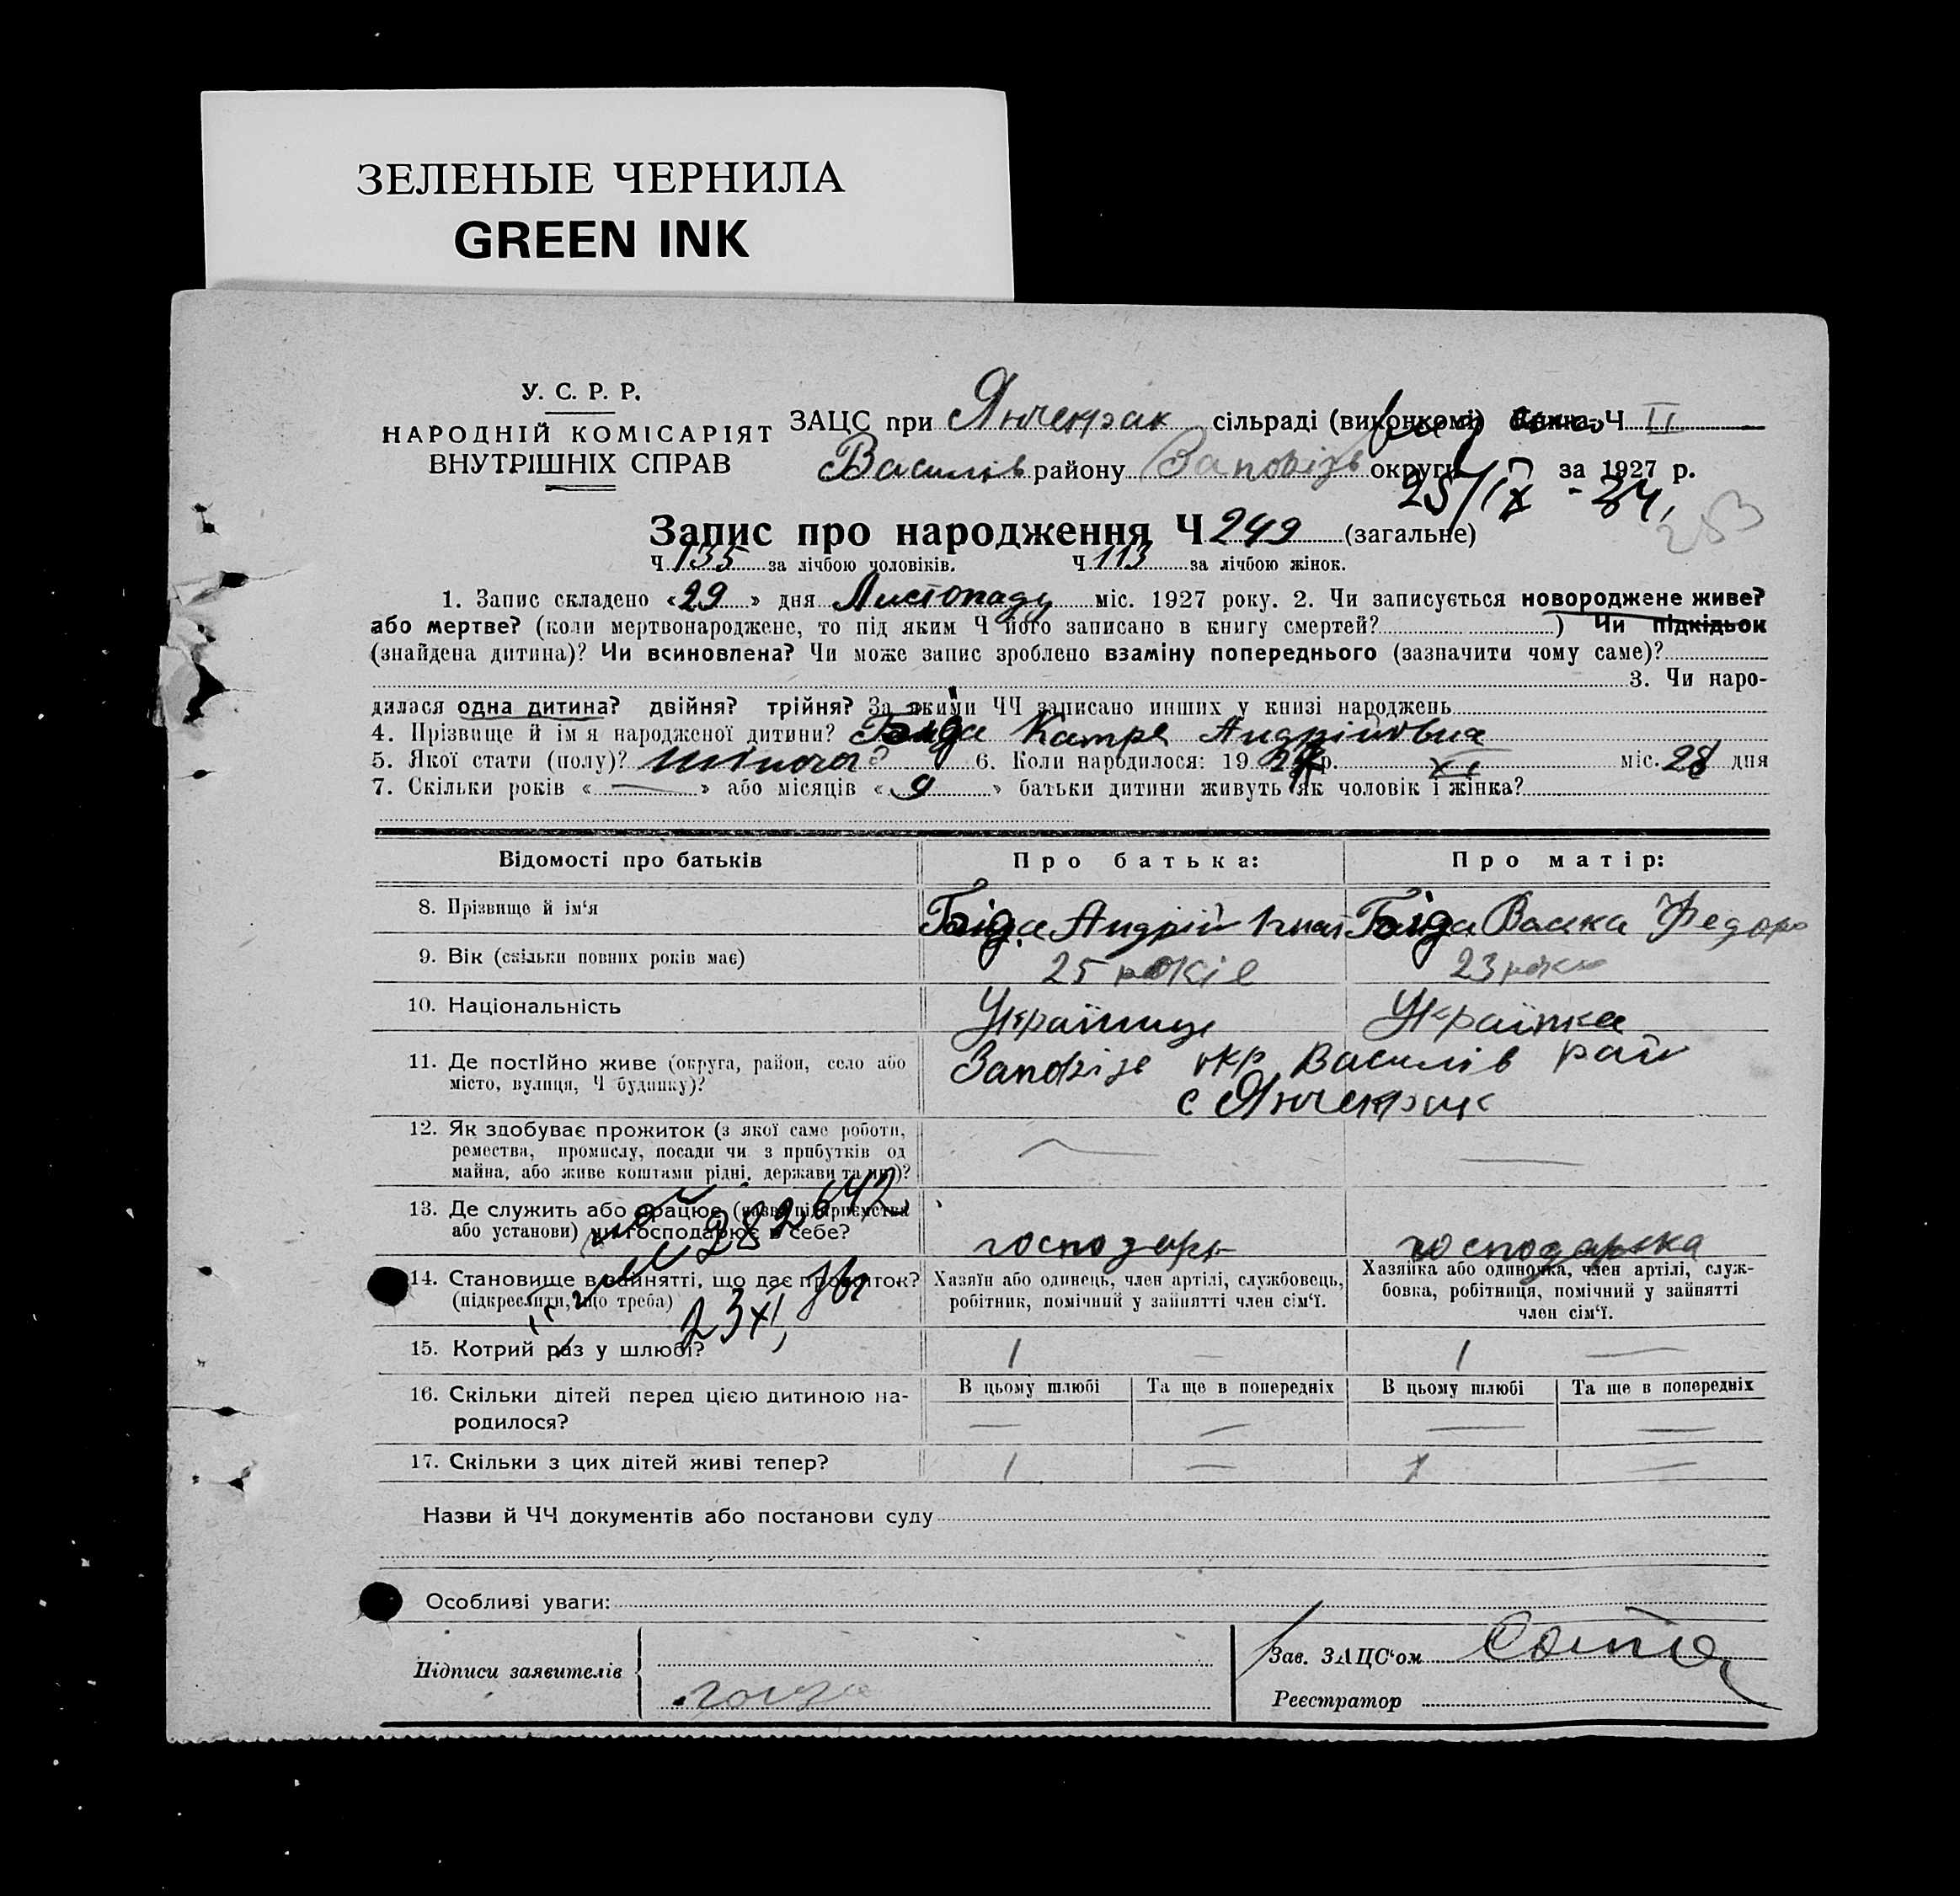 ЗЕЛЕНЫЕ ЧЕРНИЛА
GREEN INK
У. С. Р. Р.
НАРОДНІЙ КОМІСАРІЯТ
ВНУТРІШНІХ СПРАВ
ЗАЦС при Янчекрак сільраді (виконкомі) Книга Ч II
Василів району Запорізь округи за 1927 р.
25/IX - 34,
253
Запис про народження Ч 249 (загальне)
Ч 135 за лічбою чоловіків. Ч 113 за лічбою жінок.
1. Запис складено «29» дня Листопаду міс. 1927 року. 2. Чи записується новороджене живе?
або мертве? (коли мертвонароджене, то під яким Ч його записано в книгу смертей? ) Чи підкідьок
(знайдена дитина)? Чи всиновлена? Чи може запис зроблено взаміну попереднього (зазначити чому саме)?
3. Чи наро-
дилася одна дитина? двійня? трійня? За якими ЧЧ записано инших у книзі народжень
4. Прізвище й ім я народженої дитини? Гаїда Катря Андріївна
5. Якої стати (полу)? жіночої 6. Коли народилося: 1927 р. XI міс. 28 дня
7. Скільки років « — » або місяців « 9 » батьки дитини живуть як чоловік і жінка?
Відомості про батьків
Про батька:
Про матір:
8. Прізвище й ім‘я
Гаїда Андрій Гнат
Гаїда Васка Федоро
9. Вік (скільки повних років має)
25 років
23 роки
10. Національність
Українець
Українка
11. Де постійно живе (округа, район, село або
місто, вулиця, Ч будинку)?
Запорізь окр Василів рай
с Янчекрак
12. Як здобуває прожиток (з якої саме роботи,
ремества, промислу, посади чи з прибутків од
майна, або живе коштами рідні, держави та ин.)?
—
—
13. Де служить або працює (назва підприємства
або установи) чи господарює в себе?
господарь
господарька
282642
23 XI
14. Становище в зайнятті, що дає прожиток?
(підкреслити, що треба)
Хазяїн або одинець, член артілі, службовець,
робітник, помічний у зайнятті член сім‘ї.
Хазяйка або одиночка, член артілі, служ-
бовка, робітниця, помічний у зайнятті
член сім‘ї.
15. Котрий раз у шлюбі?
1 — 1 —
16. Скільки дітей перед цією дитиною на-
родилося?
В цьому шлюбі
Та ще в попередніх
В цьому шлюбі
Та ще в попередніх
— — — —
17. Скільки з цих дітей живі тепер?
1 — 1 —
Назви й ЧЧ документів або постанови суду
Особливі уваги:
Підписи заявителів
Гаїда
Зав. ЗАЦС‘ом
Реєстратор